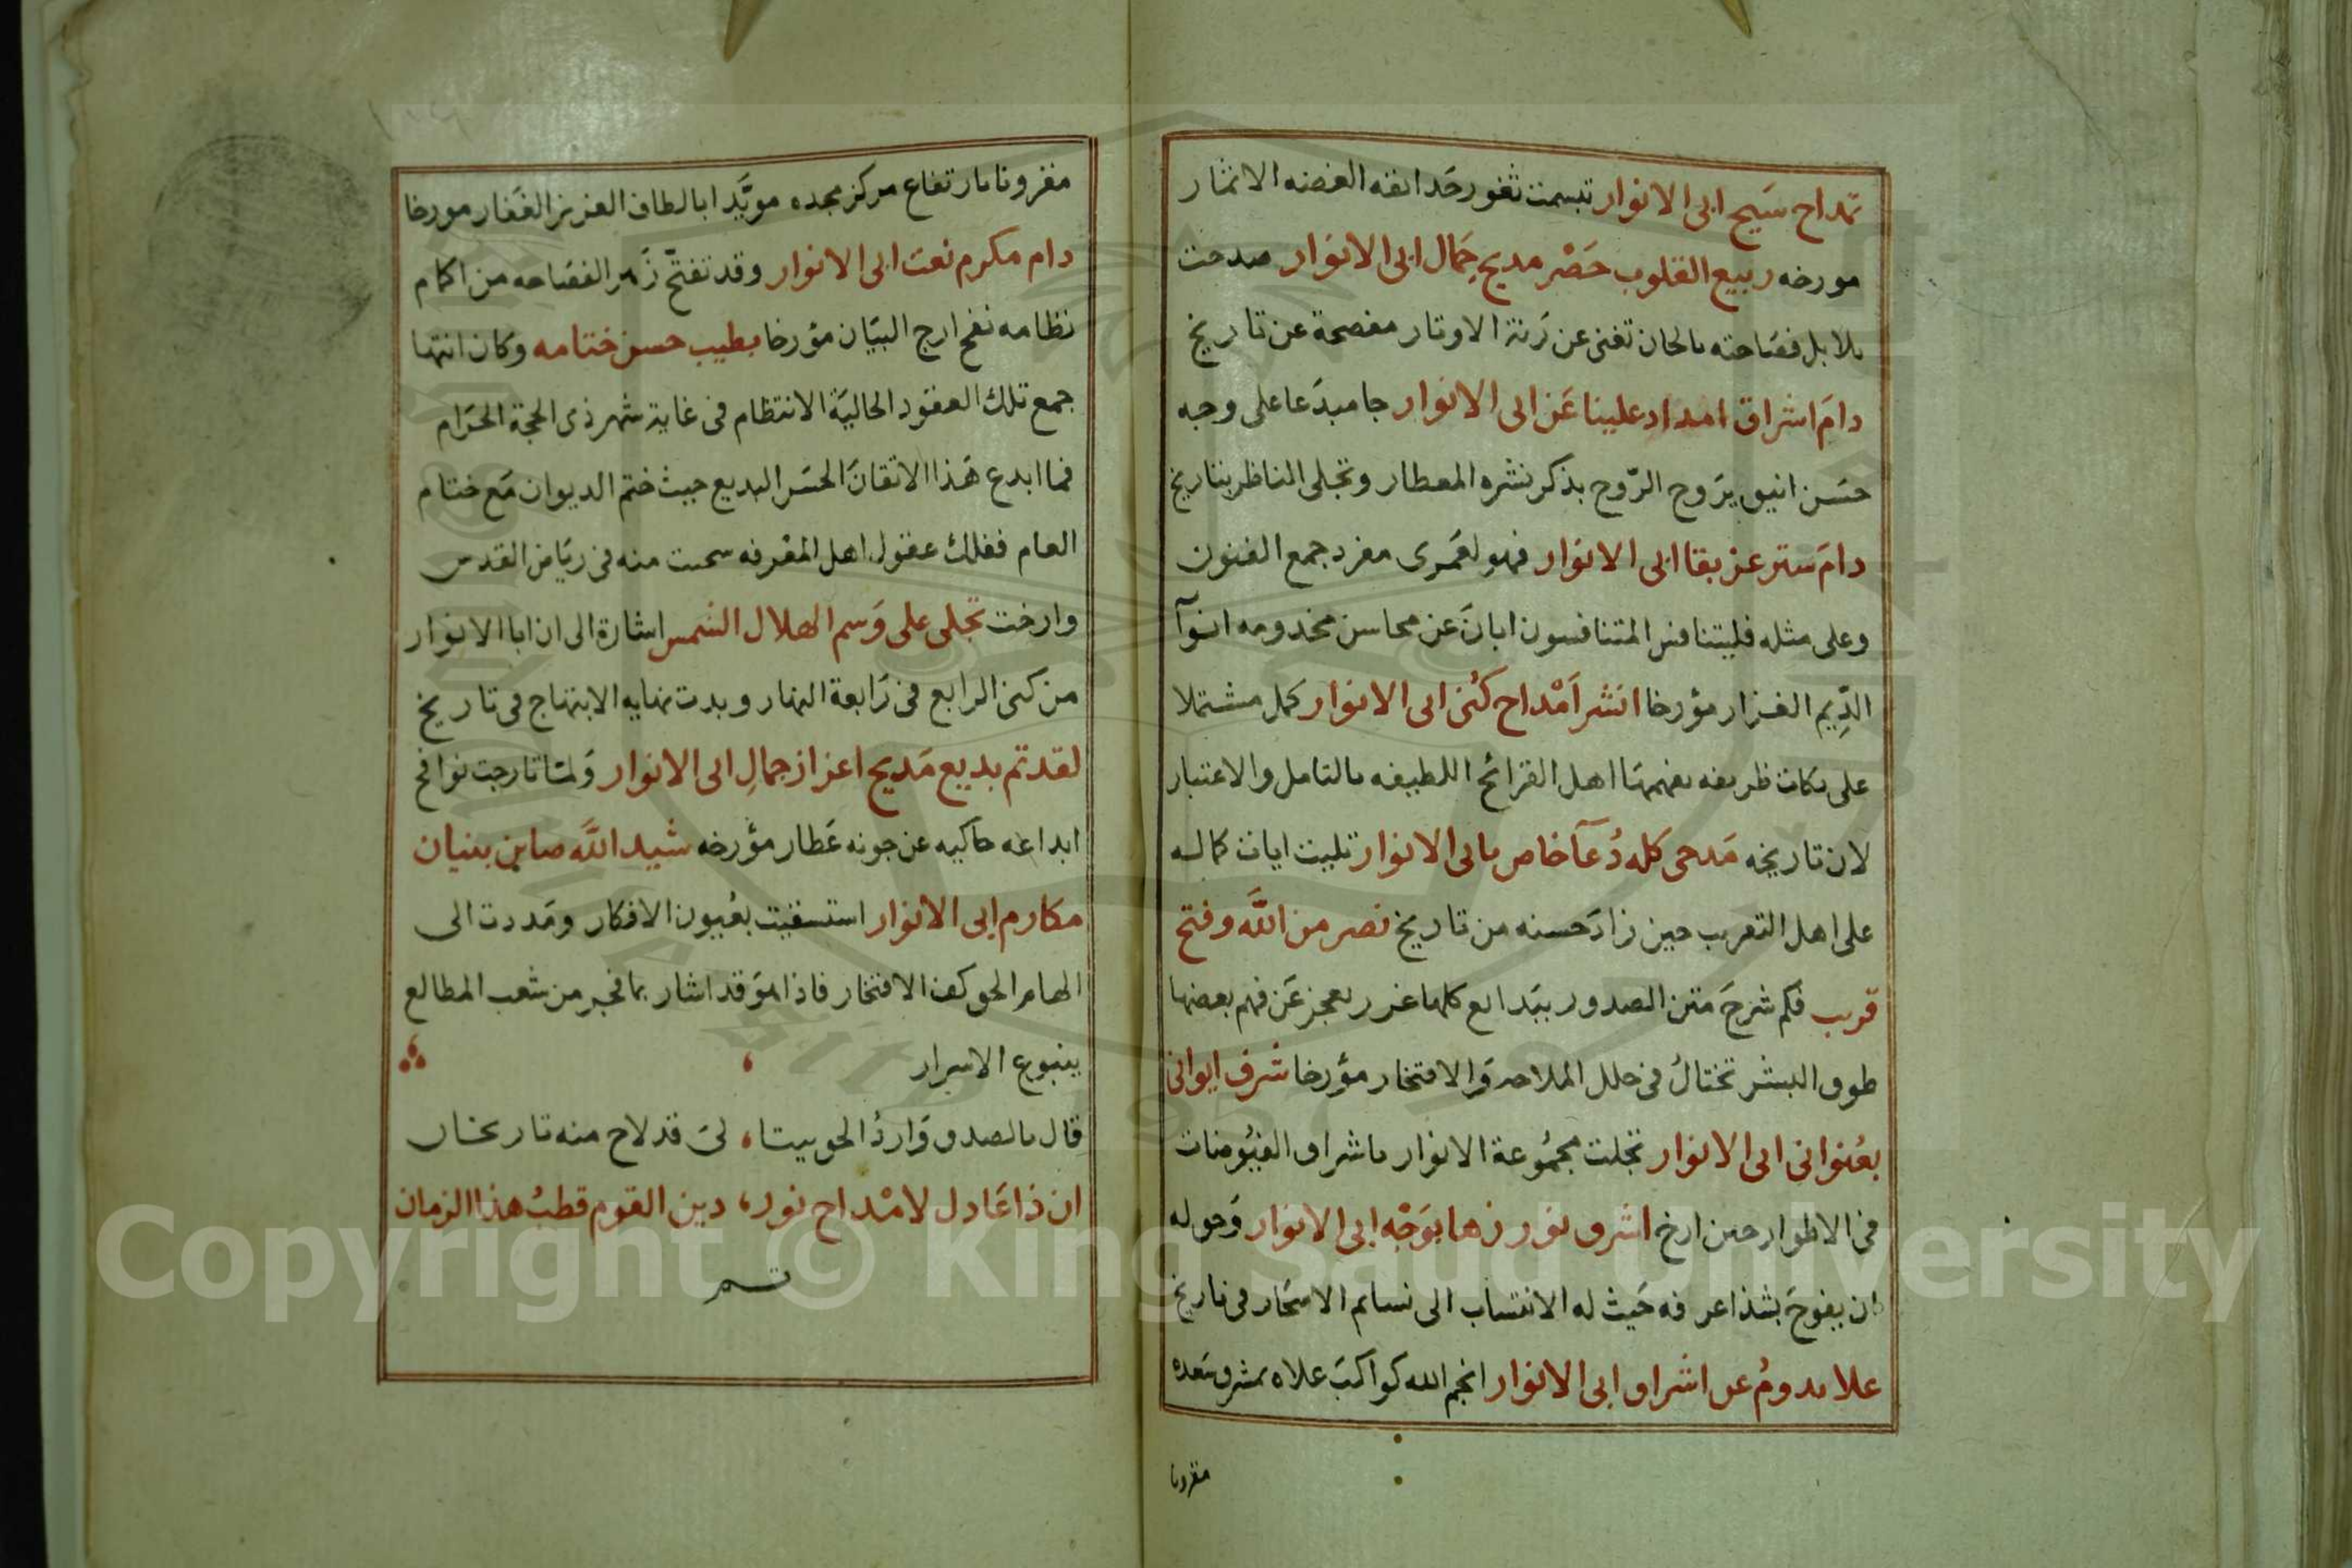 تمداح سَيح ابى الانوار تبسمت ثغور حَدائقه الغضه الاثمار
مورخه ربيع القلوب حَصْر مديح جَمال ابى الانوَار صدحت
بلابل فصَاحته بالحان تغنى عن رَنة الاوتار مفصحة عن تاريخ
دامَ اشراق امداد علينا عَن ابى الانوار جا مبدَعا على وجه
حسَن انيق يرَوح الرّوح بذكر نشره المعطار وتجلى المناظر بتاريخ
دامَ ستر عز بقا ابى الانوَار فهو لعَمرى مفرد جمع الفنون
وعلى مثله فليتنافس المتنافسون ابانَ عن محاسن مخدومه انوآ
الدِّيم الغزار مؤرخا انشر اَمْداح كنى ابى الانوار كمل مشتملا
على نكات ظريفه يفهمهَا اهل القرائح اللطيفه بالتامل والاعتبار
لان تاريخه مَدحى كله دُعآ خاص بابى الانوار تليت ايات كماله
على اهل التعريب حين زادَ حسنه من تاريخ نصر من اللَّه وفتح
قريب فكم شرحَ متن الصدور ببَدايع كلها غرر يعجز عَن فهم بعضها
طوق البشر تختالُ فى حلل الملاحه وَالافتخار مؤرخا شرف ايوانى
بعُنوانى ابى الانوار تجلت مجمُوعة الانوار باشراق الفيُوضات
فى الاطوار حين ارخ اشرق نور زها بوَجْه ابى الانوار وَحق له
ان يفوحَ بشذا عرفه حَيث له الانتسَاب الى نسايم الاسحَار فى تاريخ
علا يدومُ عن اشراق ابى الانوار انجم الله كواكبَ علاه بمشرق سَعده
مقرونا
مقرونا بارتفاع مركز مجده مويَّدا بالطاف العزيز الغفار مورخا
دام مكرم نعت ابى الانوار وقد تفتّح زَهر الفصَاحه من اكمام
نظامه نفح ارج البيَان مؤرخا بطيب حسن ختامه وكان انتها
جمع تلك العقود الحاليَة الانتظام فى غاية شهر ذى الحجة الحَرام
فما ابدع هَذا الاتقانَ الحسَن البديع حيث ختم الديوان مَع ختام
العام فغلاك عقول اهل المعْرفه سحت منه فى ريَاض القدس
وارخت تجلى على وَسم الهلال الشمس اشارة الى ان ابا الانوار
من كنى الرابع فى رَابعة النهار وبدت نهايه الابتهاج فى تاريخ
لقد تم بديع مَديح اعزاز جمالِ ابى الانوار وَلمّا تارجت نوافح
ابداعه حَاكيه عن جونه عَطار مؤرخه شيد اللَّه صاين بنيان
مكارم ابى الانوار استسقيَت بعُيون الافكار ومَددت الى
الهام الحق كف الافتخار فاذا هوَ قد اشار بما فجر من شعب المطالع
ينبوع الاسرار
قال بالصدق وَاردُ الحق بيتا، لىَ قد لاح منه تاريخان
ان ذا عَادل لامْداح نور، دين القوم قطبُ هذا الزمان
تم